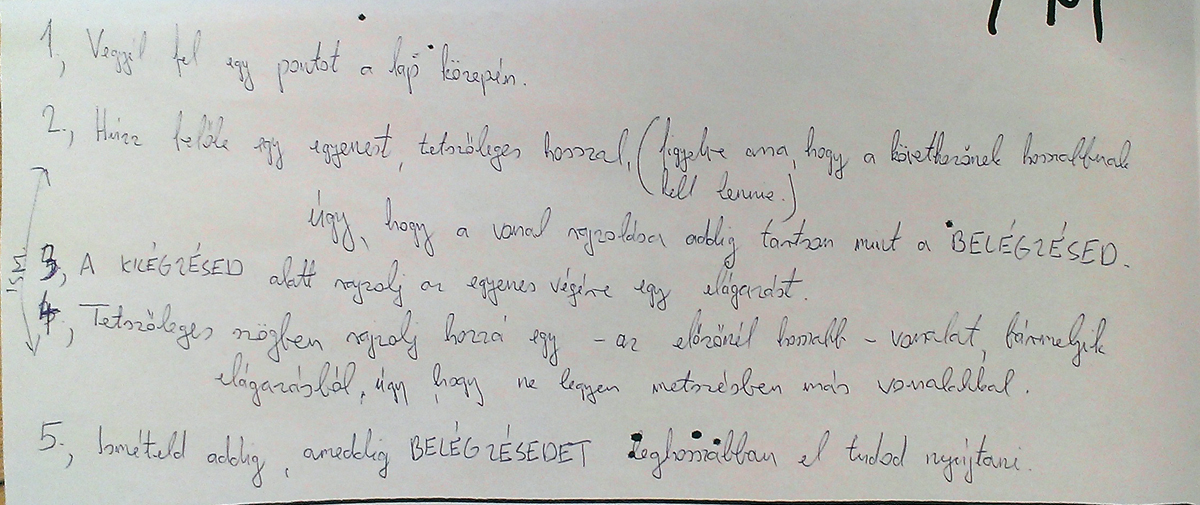 1, Vegyél fel egy pontot a lap közepén.
2., Húzz belőle egy egyenest, tetszőleges hosszal, (figyelve arra, hogy a következőnek hosszabbnak
kell lennie.)
úgy, hogy a vonal rajzolása addig tartson mint a BELÉGZÉSED.
3, A KILÉGZÉSED alatt rajzolj az egyenes végére egy elágazást.
4, Tetszőleges szögben rajzolj hozzá egy - az előzőnél hosszabb - vonalat, bármelyik
elágazásból, úgy, hogy ne legyen metszésben más vonalakkal.
5., Ismételd addig, ameddig BELÉGZÉSEDET leghosszabban el tudod nyújtani.
ISM.